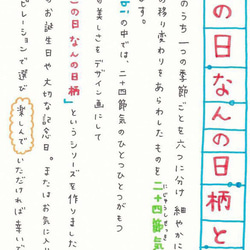 の日なんの日柄と
のうち一つの季節ごとを六つに分け細やかに
の移り変わりをあらわしたものを二十四節気
にじゅうしせっき
す。
の中では、二十四節気のひとつひとつがもつ
の美しさをデザイン画にして
の日なんの日柄」というシリーズを作りました
のお誕生日や大切な記念日。またはお気に入り
ピレーションで選び楽しんでいただければ幸いで